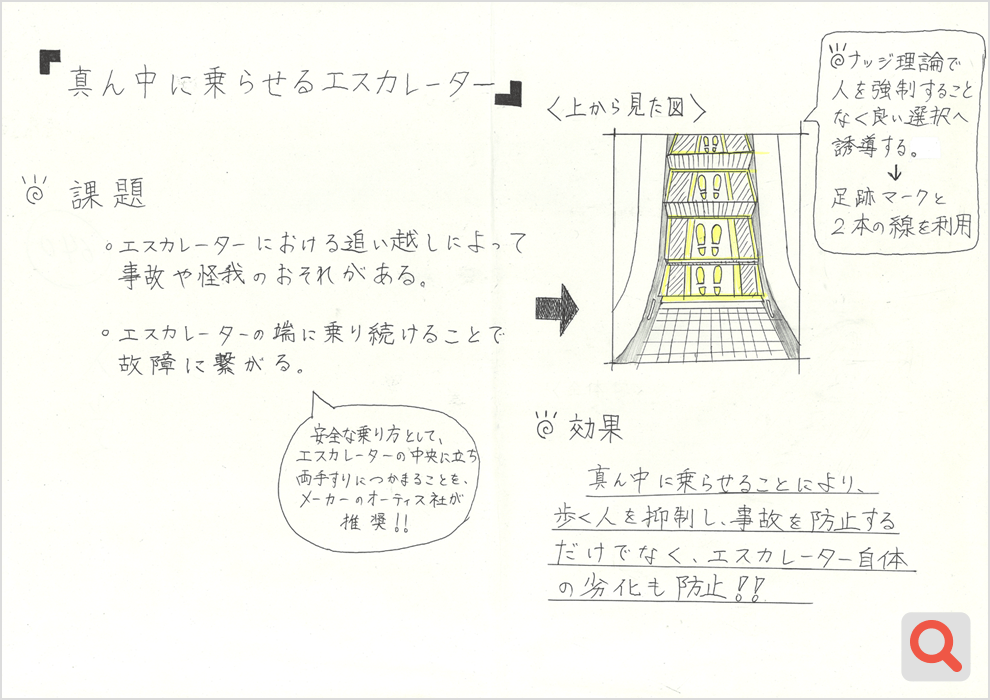 『真ん中に乗らせるエスカレーター』
課題
○エスカレーターにおける追い越しによって
事故や怪我のおそれがある。
○エスカレーターの端に乗り続けることで
故障に繋がる。
安全な乗り方として、
エスカレーターの中央に立ち
両手すりにつかまることを、
メーカーのオーティス社が
推奨!!
〈上から見た図〉
ナッジ理論で
人を強制すること
なく良い選択へ
誘導する。
↓
足跡マークと
2本の線を利用
効果
真ん中に乗らせることにより、
歩く人を抑制し、事故を防止する
だけでなく、エスカレーター自体
の劣化も防止!!